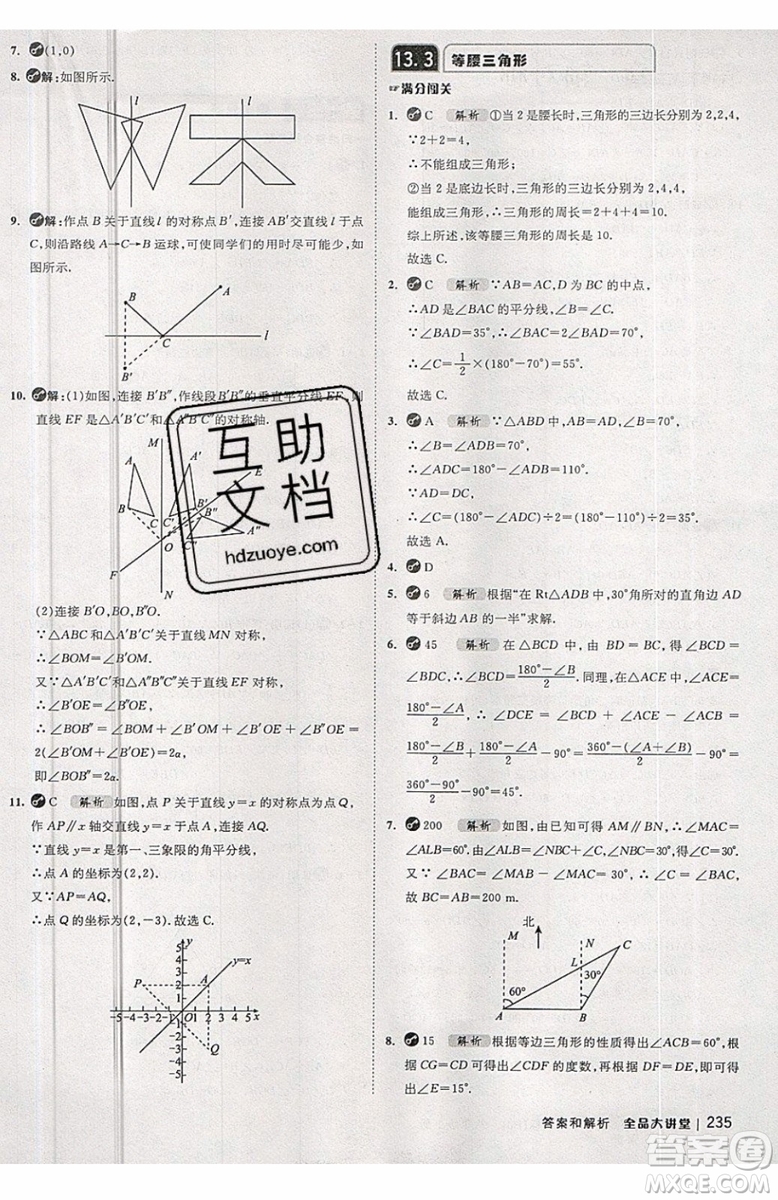 7. (1,0)
8. 解:如图所示.
l
l
9. 解:作点 B 关于直线 l 的对称点 B′,连接 AB′交直线 l 于点
C,则沿路线 A→C→B 运球,可使同学们的用时尽可能少,如
图所示.
A
B
C
l
B′
10. 解:(1)如图,连接 B′B″,作线段B′B″的垂直平分线 EF,则
直线 EF 是△A′B′C′和△A″B″C″的对称轴.
M
A A′ E
B B′
C C′ B″ A″
O C″
F
N
(2)连接 B′O,BO,B″O.
∵△ABC 和△A′B′C′关于直线 MN 对称,
∴∠BOM=∠B′OM.
又∵△A′B′C′和△A″B″C″关于直线 EF 对称,
∴∠B′OE=∠B″OE.
∴∠BOB″=∠BOM+∠B′OM+∠B′OE+∠B″OE=
2(∠B′OM+∠B′OE)=2α,
即∠BOB″=2α.
11. C 解析 如图,点 P 关于直线 y=x 的对称点为点 Q,
作 AP∥x 轴交直线 y=x 于点 A,连接 AQ.
∵直线 y=x 是第一、三象限的角平分线,
∴点 A 的坐标为(2,2).
又∵AP=AQ,
∴点 Q 的坐标为(2,-3).故选 C.
y
y=x
P A
-5-4-3-2-1 O 1 2 3 4 5 x
Q
13.3 等腰三角形
☞满分闯关
1. C 解析 ①当 2 是腰长时,三角形的三边长分别为 2,2,4,
∵2+2=4,
∴不能组成三角形;
②当 2 是底边长时,三角形的三边长分别为 2,4,4,
能组成三角形,∴三角形的周长=2+4+4=10.
综上所述,该等腰三角形的周长是 10.
故选 C.
2. C 解析 ∵AB=AC,D 为 BC 的中点,
∴AD 是∠BAC 的平分线,∠B=∠C,
∵∠BAD=35°,∴∠BAC=2∠BAD=70°,
∴∠C=1/2×(180°-70°)=55°.
故选 C.
3. A 解析 ∵△ABD 中,AB=AD,∠B=70°,
∴∠B=∠ADB=70°,
∴∠ADC=180°-∠ADB=110°,
∵AD=DC,
∴∠C=(180°-∠ADC)÷2=(180°-110°)÷2=35°.
故选 A.
4. D
5. 6 解析 根据“在 Rt△ADB 中,30°角所对的直角边 AD
等于斜边 AB 的一半”求解.
6. 45 解析 在△BCD 中,由 BD=BC,得∠BCD=
∠BDC=(180°-∠B)/2.在△ACE 中,由 AC=AE,得∠ACE=
(180°-∠A)/2,∴∠DCE=∠BCD+∠ACE-∠ACB=
(180°-∠B)/2+(180°-∠A)/2-90°=(360°-(∠A+∠B))/2-90°=
(360°-90°)/2-90°=45°.
7. 200 解析 如图,由已知得 AM∥BN,∴∠MAC=
∠ALB=60°.由∠NBC=30°,得∠C=∠ALB-∠NBC=30°.
又∵∠BAC=∠MAB-∠MAC=30°,∴∠C=
∠BAC,∴BC=AB=200 m.
北
M N C
L
30°
60°
A B
8. 15 解析 根据等边三角形的性质得出∠ACB=60°,根
据 CG=CD 可得出∠CDF 的度数,再由 DF=DE,即可得
出∠E=15°.
答案和解析 全品大讲堂 235
互助
文档
hdzuoye.com
答案圈
MXQE.COM